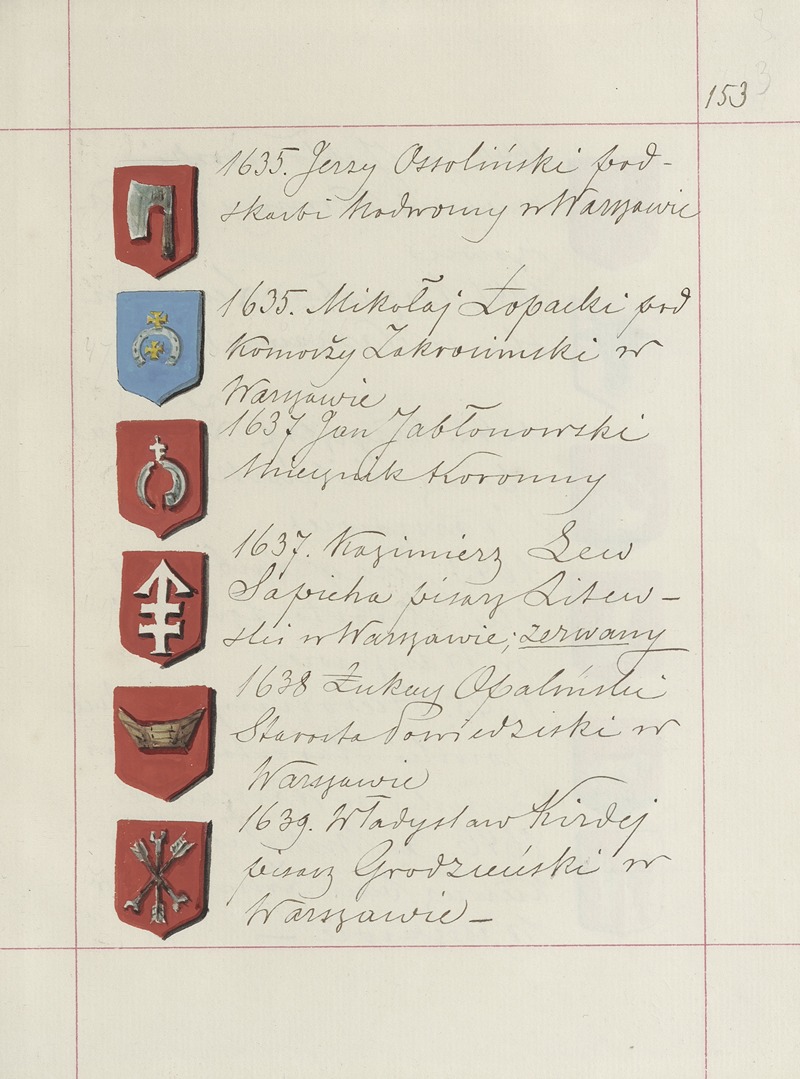 153
1635. Jerzy Ossoliński pod-
skarbi Nadworny w Warszawie
1635. Mikołaj Łopacki pod
Komorży Zakrocimski w
Warszawie
1637 Jan Jabłonowski
Miecznik Koronny
1637. Kazimierz Lew
Sapieha pisarz Litew-
ski w Warszawie; zerwany
1638 Łukasz Opaliński
Starosta Powiedziski w
Warszawie
1639. Władysław Kirdej
pisarz Grodzieński w
Warszawie –